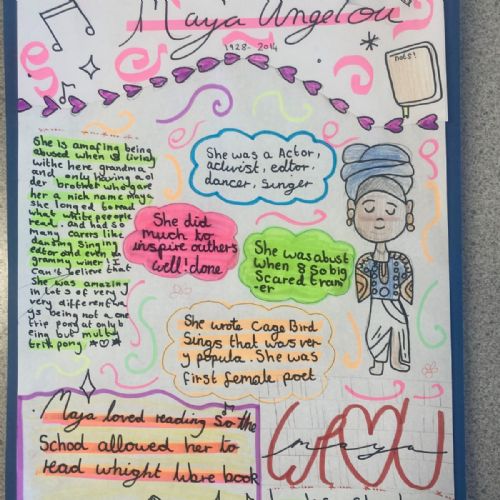 Maya Angelou
1928-2014
nots!
She is amazing being
abused when 8 living
withe here grandma
and only having a ol
der brother who gave
her a nick name Maya
she longed to read
what white peeople
read. and had so
many carers like
dansing singing
editor and even a
grammy winer I
can't believe that
She was amazing
in lots of very v
very different wa
ys being not a one
trip pony at only b
eing but multi
trix pony
She was a Actor,
activist, editor.
dancer, sunger
She did
much to
inspire authers
well! done
She was abust
when 8 so big
Scared tram
-er
She wrote Cage Bird
Sings that was ver
y popula. She was
first female poet
Maya loved reading So the
School allowed her to
read whight Ware book
maya